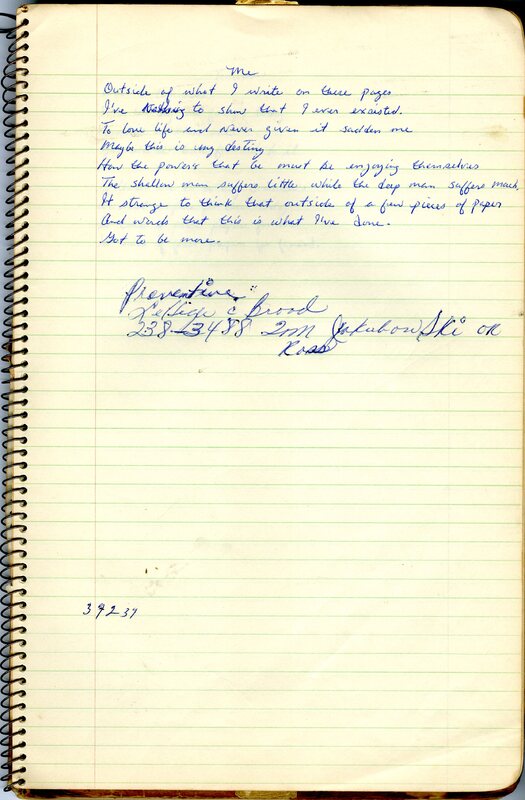 Me
Outside of what I write on these pages
I've Nothing to show that I ever exaisted.
To love life and Never given it sadden me
Maybe this is my destiny
How the powers that be must be enjoying themselves
The shallow man suffers little while the deep man suffers much,
It strange to think that outside of a few pieces of paper
And words that this is what I've done.
Got to be more.
Preventive
Lehigh & Broad
238-3488 2nd Jakubowski or
Ross
39237